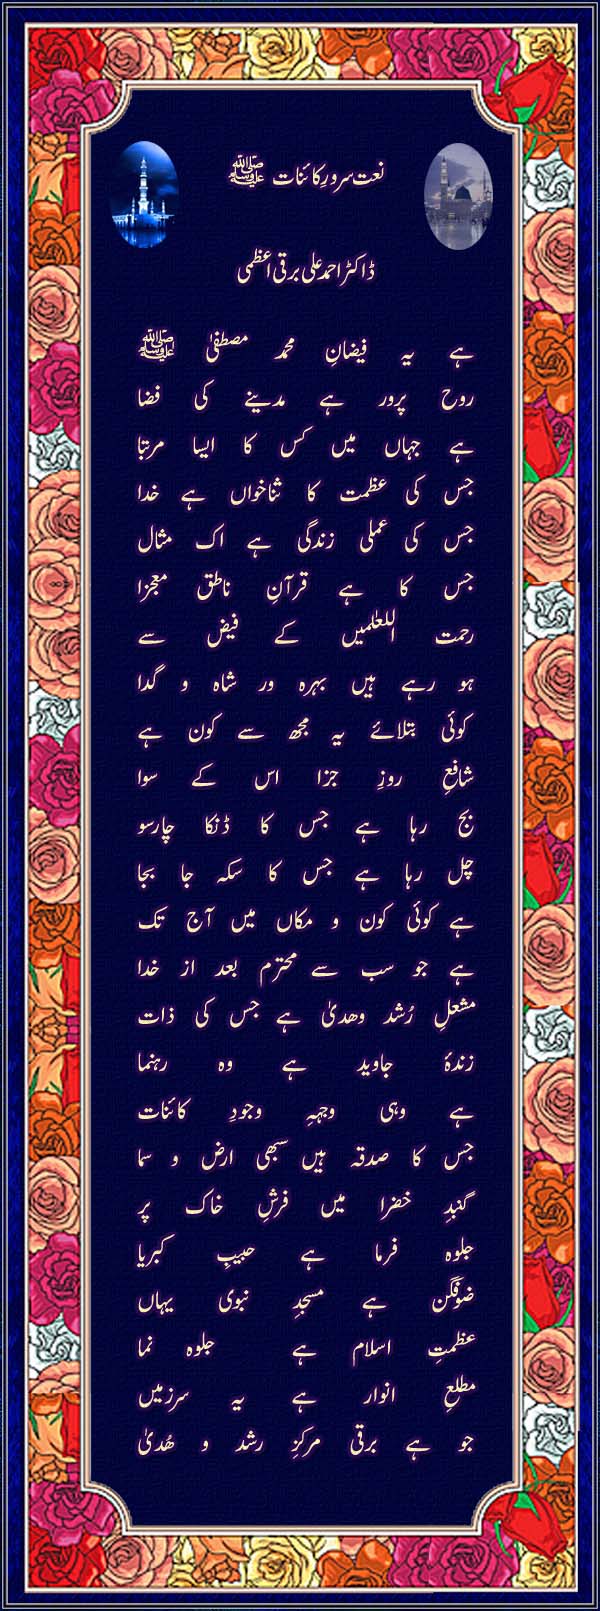 نعت سرورِ کائنات ﷺ
ڈاکٹر احمد علی برقی اعظمی
ہے یہ فیضانِ محمد مصطفیٰ ﷺ
روح پرور ہے مدینے کی فضا
ہے جہاں میں کس کا ایسا مرتبا
جس کی عظمت کا ثناخواں ہے خدا
جس کی عملی زندگی ہے اک مثال
جس کا ہے قرآنِ ناطق معجزا
رحمت اللعٰلمیں کے فیض سے
ہو رہے ہیں بہرہ ور شاہ و گدا
کوئی بتلائے یہ مجھ سے کون ہے
شافعِ روزِ جزا اس کے سوا
بج رہا ہے جس کا ڈنکا چارسو
چل رہا ہے جس کا سکہ جا بجا
ہے کوئی کون و مکاں میں آج تک
ہے جو سب سے محترم بعد از خدا
مشعلِ رُشد وھدیٰ ہے جس کی ذات
زندۂ جاوید ہے وہ رہنما
ہے وہی وجہہِ وجودِ کائنات
جس کا صدقہ ہیں سبھی ارض و سما
گنبدِ خضرا میں فرشِ خاک پر
جلوہ فرما ہے حبیبِ کبریا
ضوفگن ہے مسجدِ نبوی یہاں
عظمتِ اسلام ہے جلوہ نما
مطلعِ انوار ہے یہ سرزمیں
جو ہے برقی مرکزِ رشد و ھُدیٰ